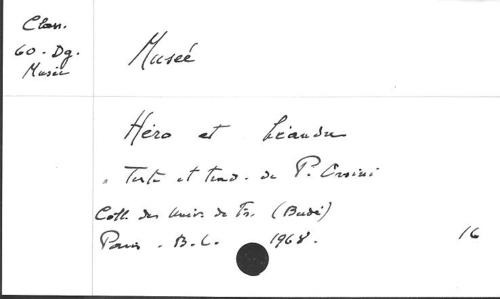 Class.
60-Dg.
Musée
Musée
Héro et Léandre
Texte et trad. de P. Orsini
Coll. des Univ. de Fr. (Budé)
Paris. B.L. 1968.
16